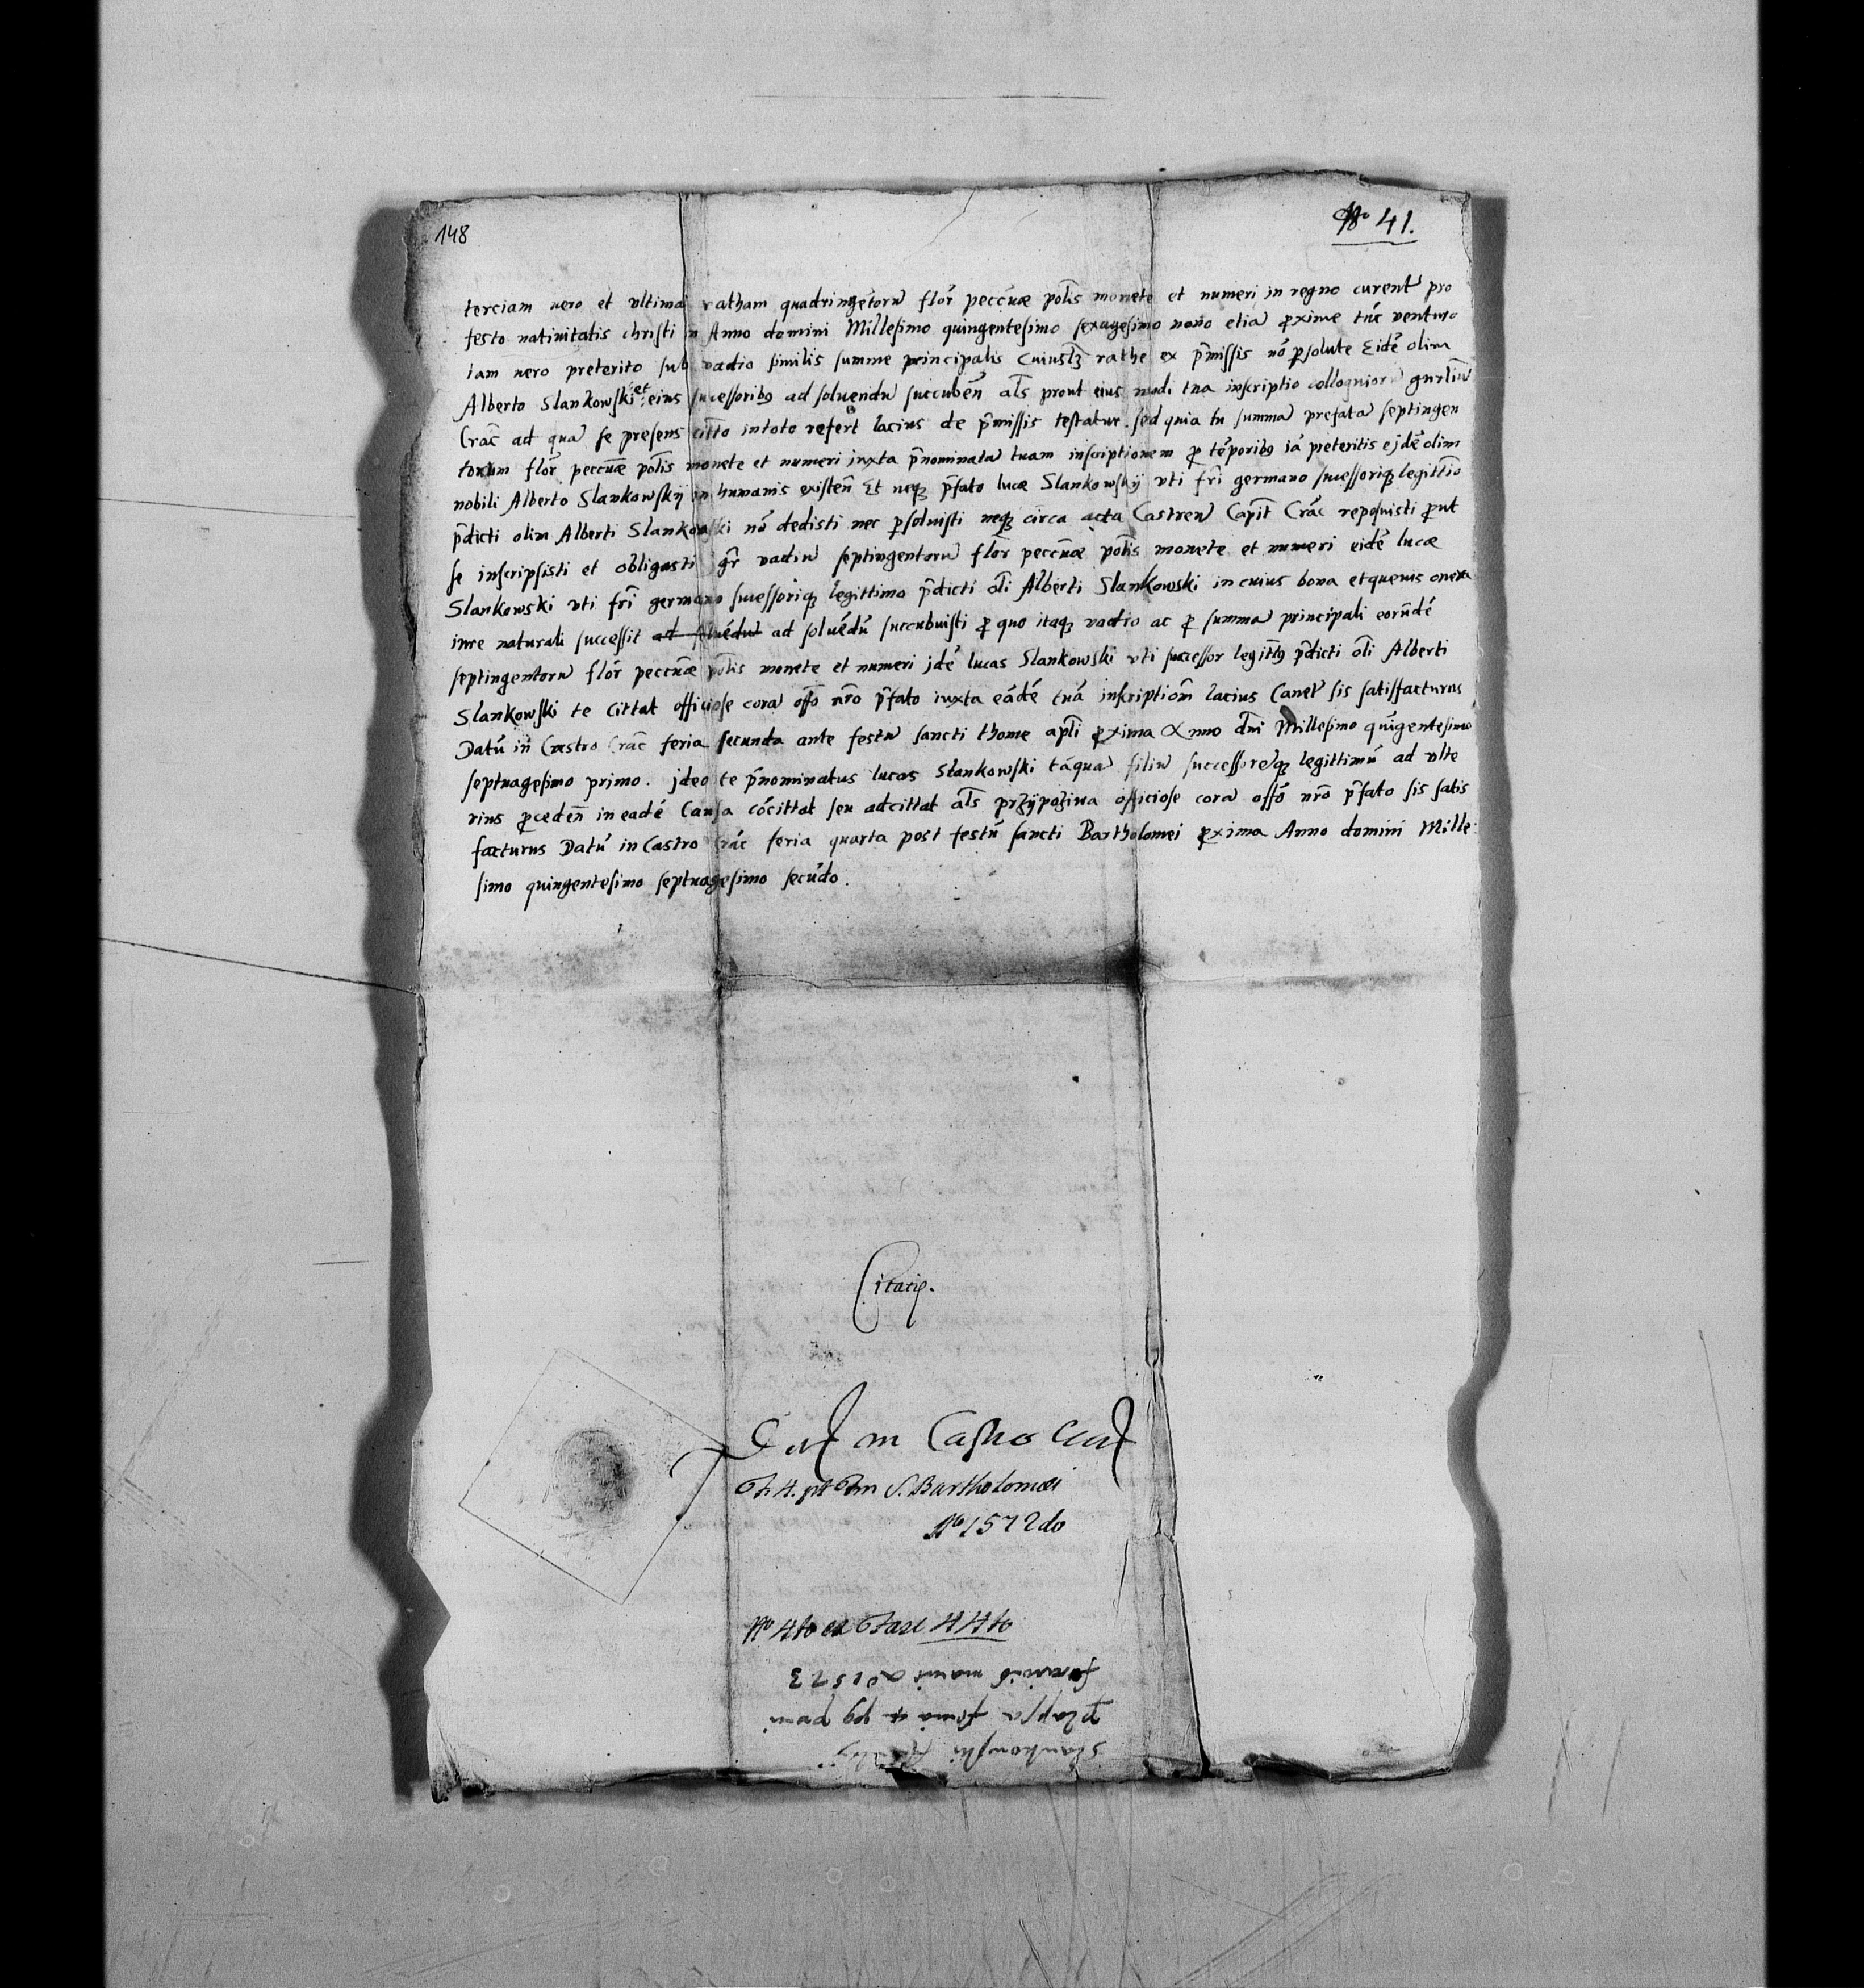 148
No 41.
terciam vero et vltimã ratham quadringẽtorũ flor̃ peccũæ polĩs monete et numeri in regno curent̃ pro
festo natiuitatis christi in Anno domini Millesimo quingentesimo sexagesimo nono etiã proxime tũc venturo
iam vero preterito sub vadio similis summe principalis cuiuslꝫ rathe ex p̃missis nõ ꝑsolute Eidẽ olim
Alberto Slankowski et eius successoribꝯ ad soluendũ succubeñ al̃s prout eius modi tua inscriptio colloquiorũ gnrliũ
Crac̃ ad quã se presens citt̃o in toto refert lacius de p̃missis testatur. sed quia tu summã prefatã septingen
torum flor̃ peccũæ polĩs monete et numeri iuxta p̃nominatã tuam inscriptionem ꝓ tẽporibꝯ iã preteritis ejdẽ olim
nobili Alberto Slankowskÿ in humanis existeñ Et neqꝫ p̃fato lucæ Slankowskÿ vti fr̃i germano successoriqꝫ legittĩo
p̃dicti olim Alberti Slankowski nõ dedisti nec ꝑsoluisti neqꝫ circa acta Castreñ Capit̃ Crac̃ reposuisti ꝓut
se inscripsisti et obligasti gr̃ vadiũ septingentorũ flor̃ peccũæ polĩs monete et numeri eidẽ lucæ
Slankowski vti fr̃i germano successoriqꝫ legittimo p̃dicti olĩ Alberti Slankowski in cuius bona et quevis onera
iure naturali successit ad soluẽdũ ad soluẽdũ succubuisti ꝓ quo itaqꝫ vadio ac ꝓ summa principali eorũdẽ
septingentorũ flor̃ peccũæ polĩs monete et numeri jdẽ lucas Slankowski vti successor legitt̃ꝯ p̃dicti olĩ Alberti
Slankowski te cittat officiose corã offõ nr̃o p̃fato iuxta eãdẽ tuã inscriptioñ lacius Canet̃ sis satisfacturus
Datũ in Castro Crac̃ feria secunda ante festũ sancti thome apl̃i ꝓxima Anno dñi Millesimo quĩgentesimo
septuagesimo primo. jdeo te p̃nominatus lucas Slankowski tãquã filiũ successorẽqꝫ legittimũ ad vlte
rius ꝓcedeñ in eadẽ Causa cõcittat seu adcittat al̃s przÿpoziwa officiose corã offõ nr̃o p̃fato sis satis
facturus Datũ in Castro Crac̃ feria quarta post festũ sancti Bartholomei ꝓxima Anno domini Mille
simo quingentesimo septuagesimo secũdo.
Citatio.
in Castro Crac̃
F. 4. pt Fm S. Bartholomæi
Ao 1572do
No 4to ex Fasc 44to
Slankowski